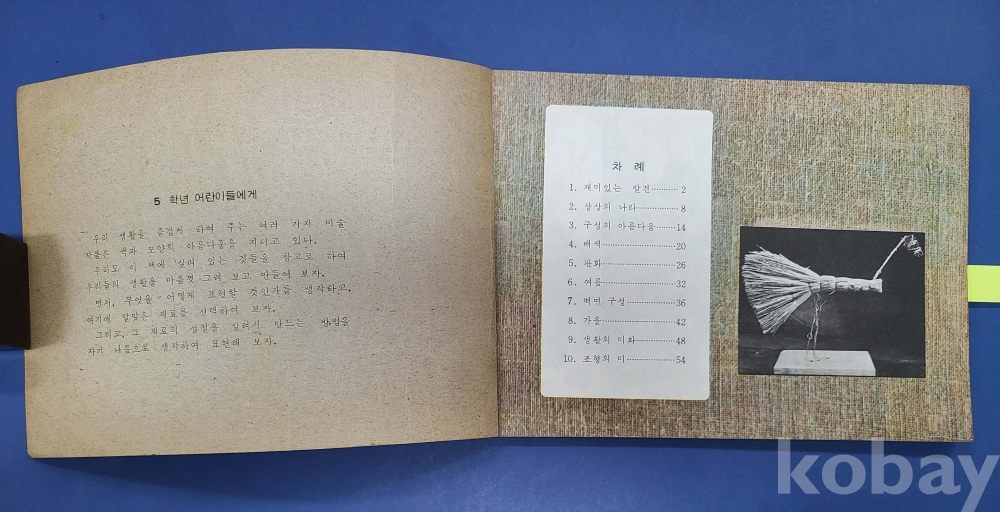 5 학년 어린이들에게
우리 생활을 즐겁게 하여 주는 여러 가지 미술
작품은 색과 모양의 아름다움을 지니고 있다.
우리도 이 책에 실려 있는 것들을 참고로 하여
우리들의 생활을 마음껏 그려 보고 만들어 보자.
먼저, 무엇을 어떻게 표현할 것인가를 생각하고,
여기에 알맞은 재료를 선택하여 보자.
그리고, 그 재료의 성질을 살려서 만드는 방법을
자기 나름으로 생각하여 표현해 보자.
차 례
1. 재미있는 발견 ··········· 2
2. 상상의 나라 ············· 8
3. 구성의 아름다움 ······· 14
4. 배색 ····················· 20
5. 판화 ····················· 26
6. 여름 ····················· 32
7. 벽면 구성 ··············· 36
8. 가을 ····················· 42
9. 생활의 미화 ············ 48
10. 조형의 미 ·············· 54
kobay